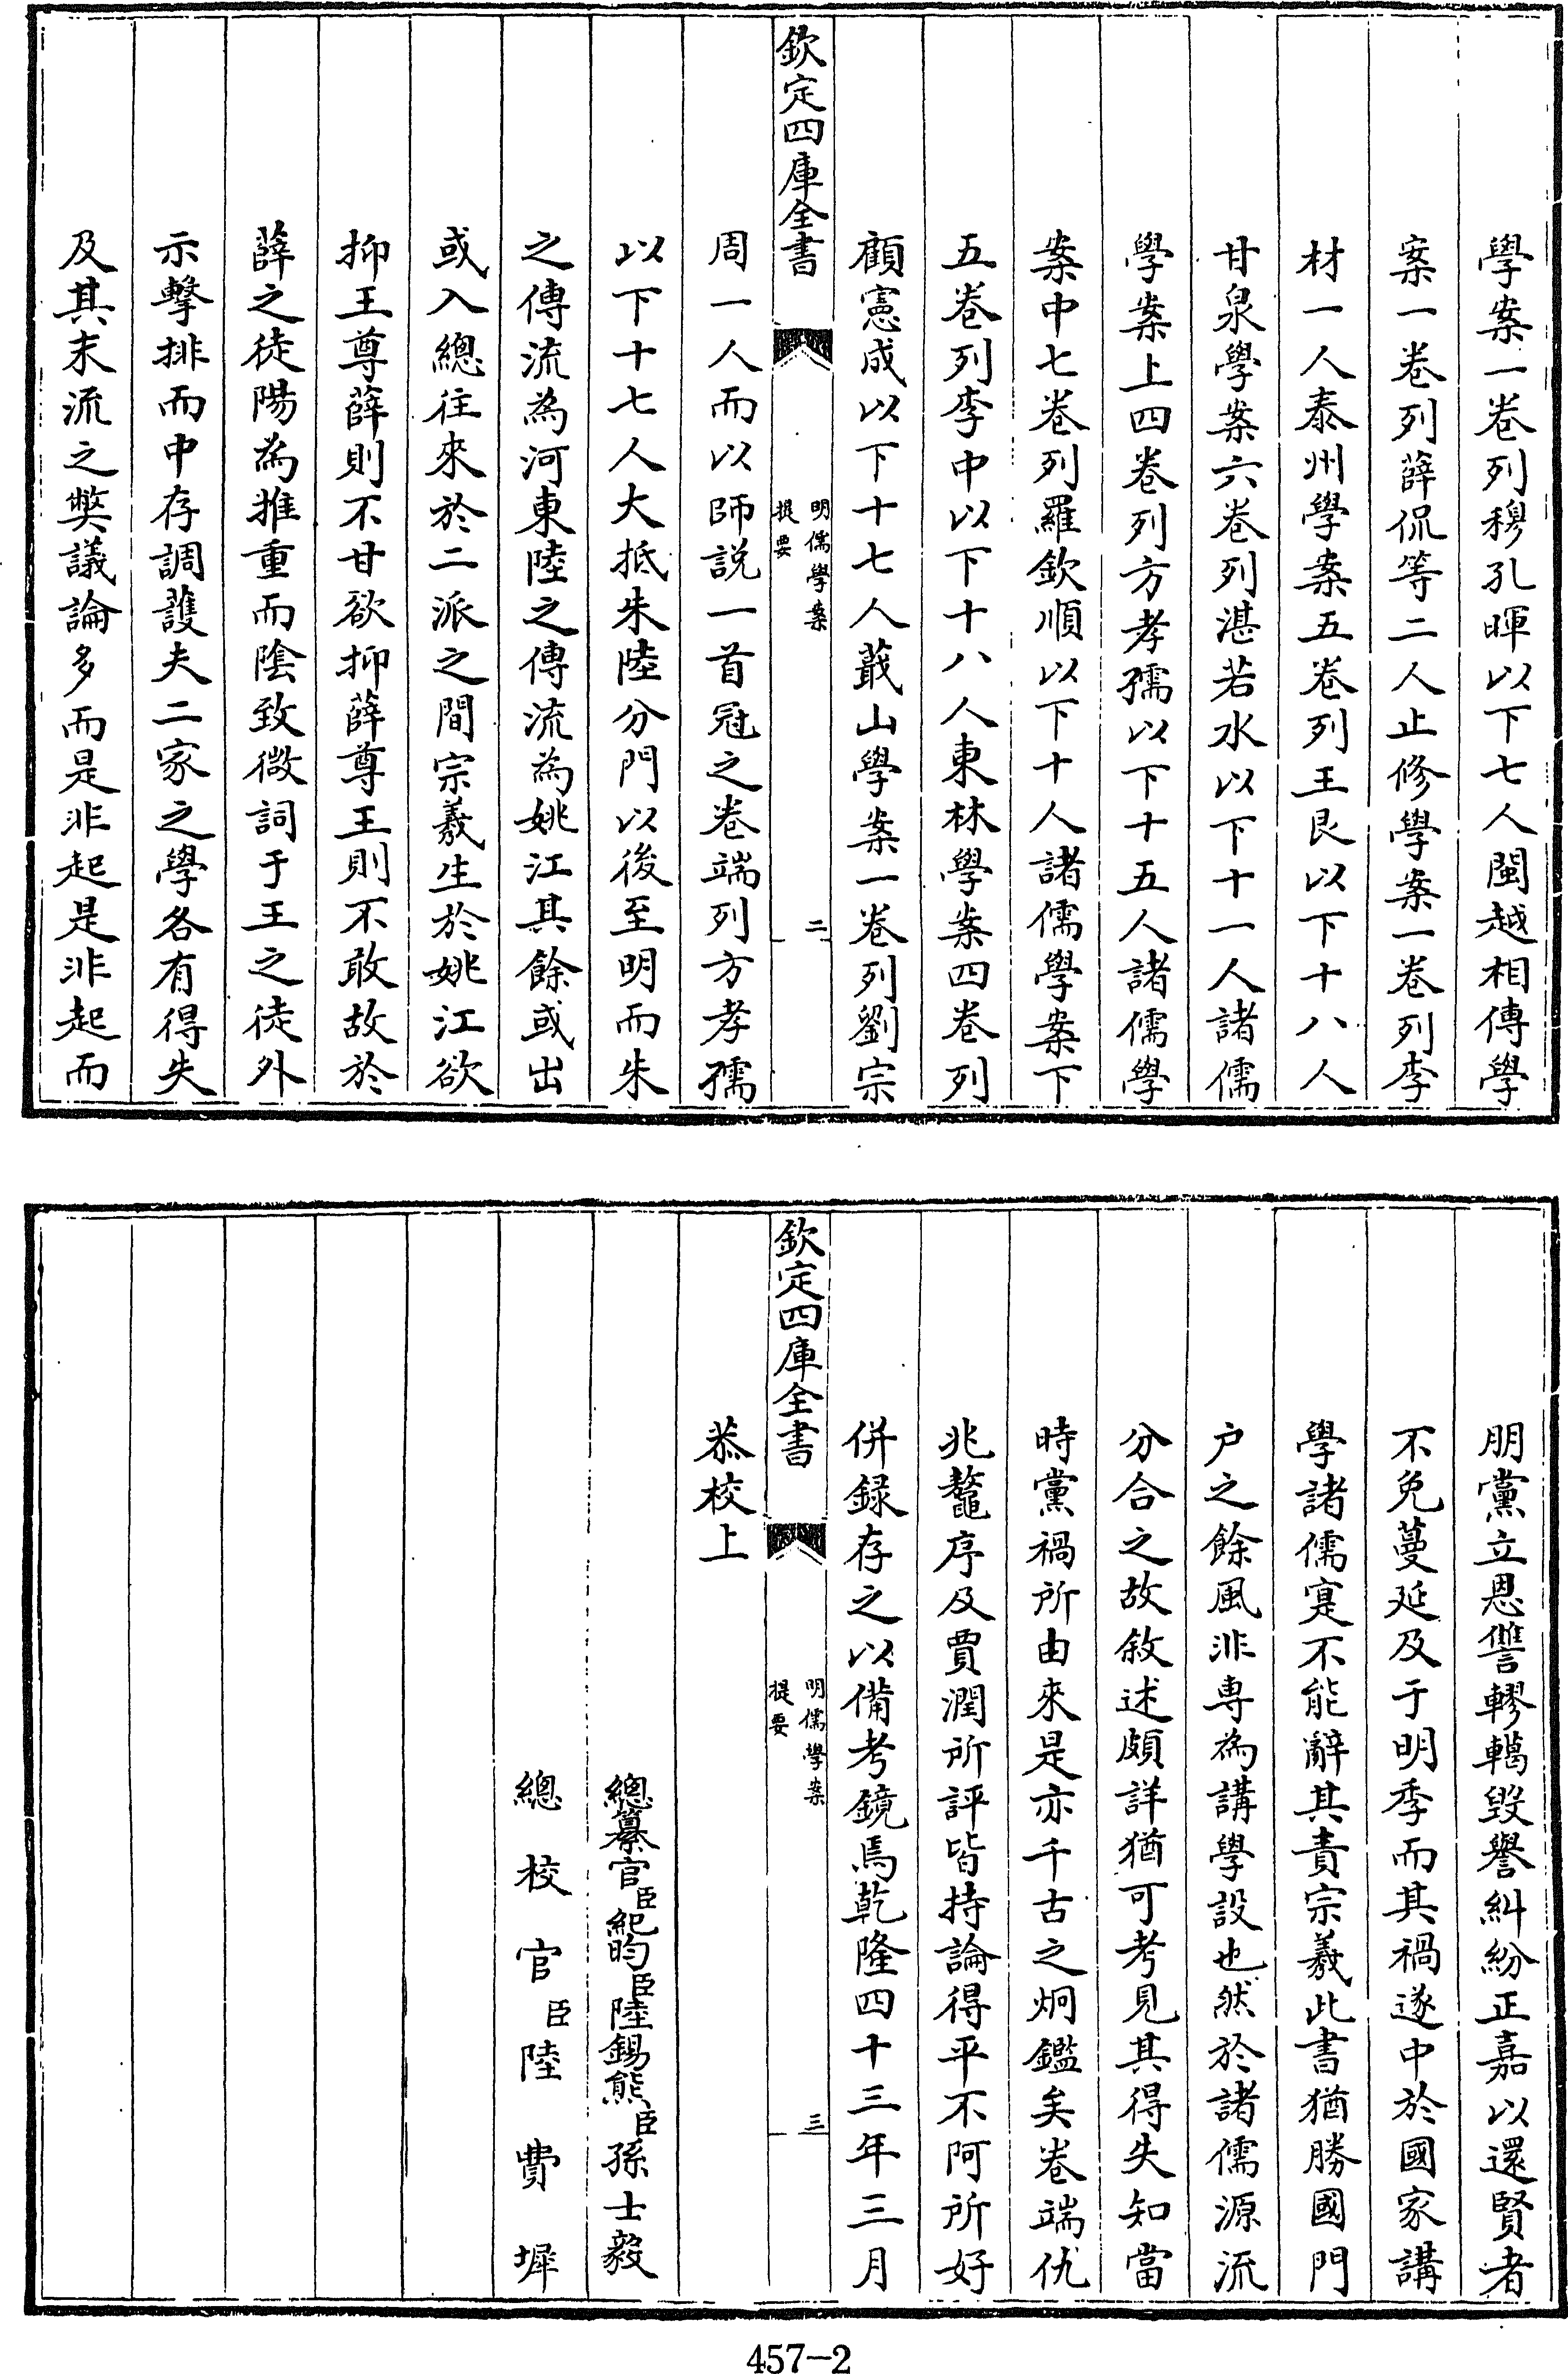 學案一卷列穆孔暉以下七人閩越相傳學
案一卷列薛侃等二人止修學案一卷列李
材一人泰州學案五卷列王艮以下十八人
甘泉學案六卷列湛若水以下十一人諸儒
學案上四卷列方孝孺以下十五人諸儒學
案中七卷列羅欽順以下十人諸儒學案下
五卷列李中以下十八人東林學案四卷列
顧憲成以下十七人蕺山學案一卷列劉宗
欽定四庫全書
明儒學案
提要
二
周一人而以師説一首冠之卷端列方孝孺
以下十七人大抵朱陸分門以後至明而朱
之傳流為河東陸之傳流為姚江其餘或出
或入總往來於二派之間宗羲生於姚江欲
抑王尊薛則不甘欲抑薛尊王則不敢故於
薛之徒陽為推重而陰致微詞于王之徒外
示擊排而中存調護夫二家之學各有得失
及其末流之弊議論多而是非起是非起而
朋黨立恩讐轇轕毀譽糾紛正嘉以還賢者
不免蔓延及于明季而其禍遂中於國家講
學諸儒寔不能辭其責宗羲此書猶勝國門
户之餘風非専為講學設也然於諸儒源流
分合之故敘述頗詳猶可考見其得失知當
時黨禍所由來是亦千古之炯鑑矣卷端仇
兆鼇序及賈潤所評皆持論得平不阿所好
併録存之以備考鏡焉乾隆四十三年三月
欽定四庫全書
明儒學案
提要
三
恭校上
總纂官臣紀昀臣陸錫熊臣孫士毅
總校官臣陸費墀
457-2